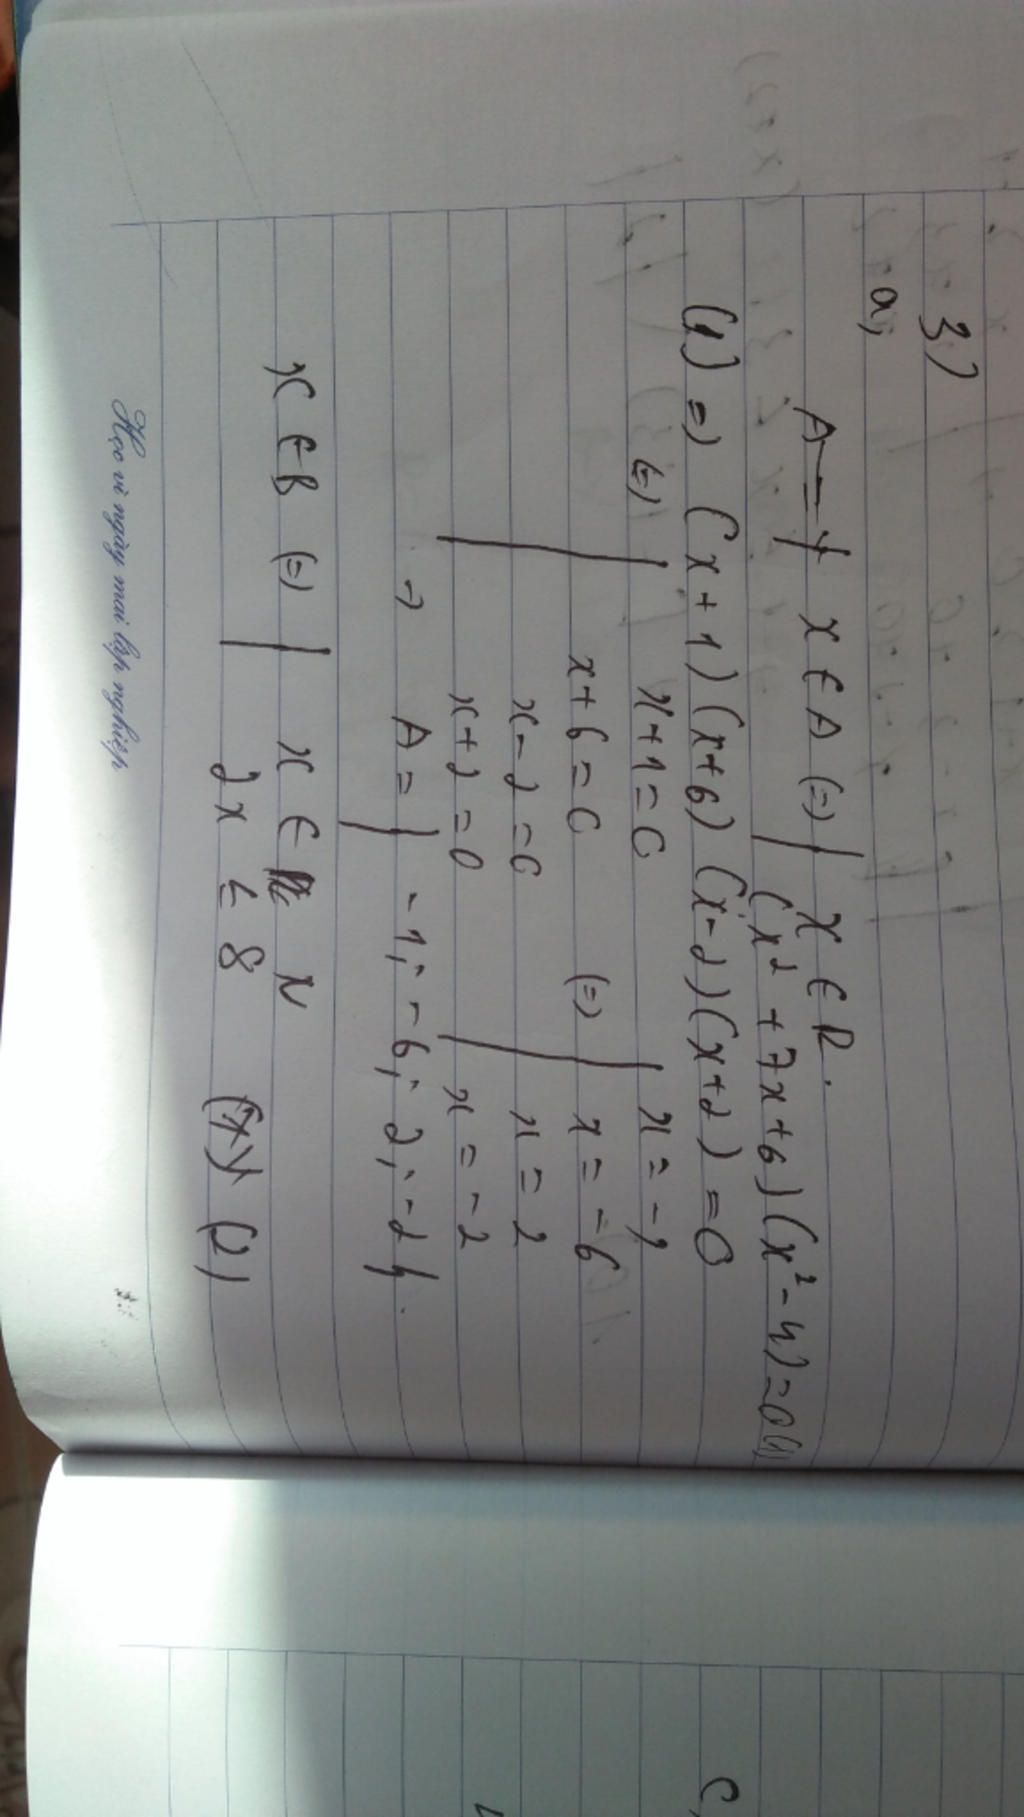 3)
a,
A = { x ∈ A (=) | x ∈ R.
(x² + 7x + 6)(x² - 4) = 0 (1)
(1) =) (x + 1)(x + 6)(x - 2)(x + 2) = 0
(=) x + 1 = 0 x = -1
x + 6 = 0 (=) x = -6
x - 2 = 0 x = 2
x + 2 = 0 x = -2
=) A = { -1; -6; 2; -2 }.
x ∈ B (=) | x ∈ N
2x ≤ 8 (2)
Học vì ngày mai lập nghiệp
C,